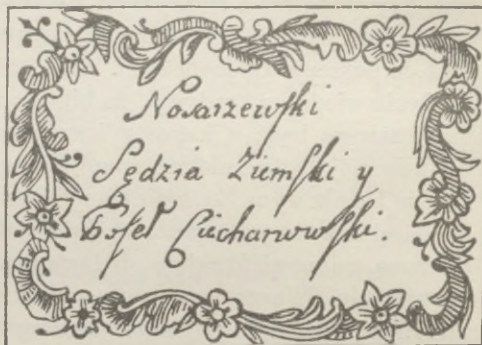 Nosarzewſki
Sędzia Ziemſki y
Poſeł Ciechanowſki.